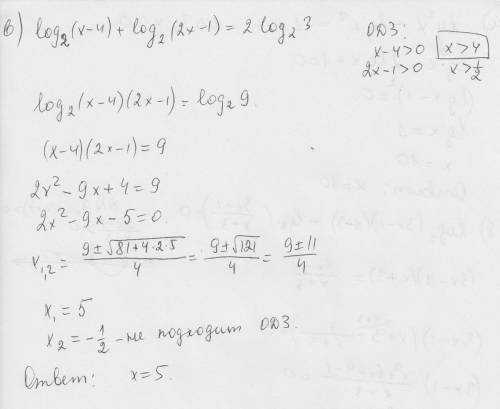 в) log₂(x-4) + log₂(2x-1) = 2 log₂ 3
ОДЗ:
x-4>0 x>4
2x-1>0 x>1/2
log₂(x-4)(2x-1) = log₂ 9.
(x-4)(2x-1) = 9
2x² - 9x + 4 = 9
2x² - 9x - 5 = 0.
x₁,₂ = (9±√(81+4·2·5))/4 = (9±√121)/4 = (9±11)/4
x₁ = 5
x₂ = -1/2 - не подходит ОДЗ.
Ответ: x = 5.